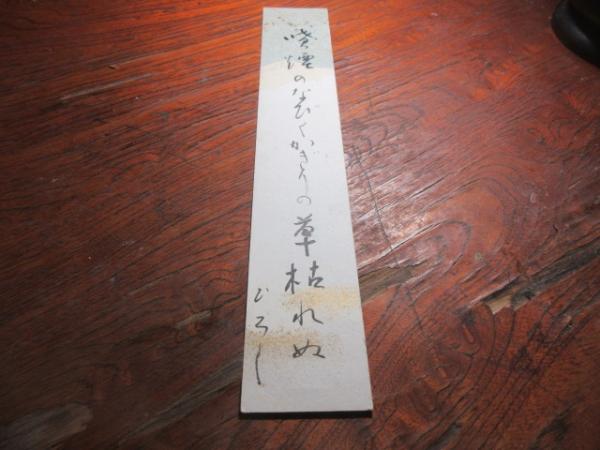 噴煙のなびくかぎりの草枯れぬ
ひろし